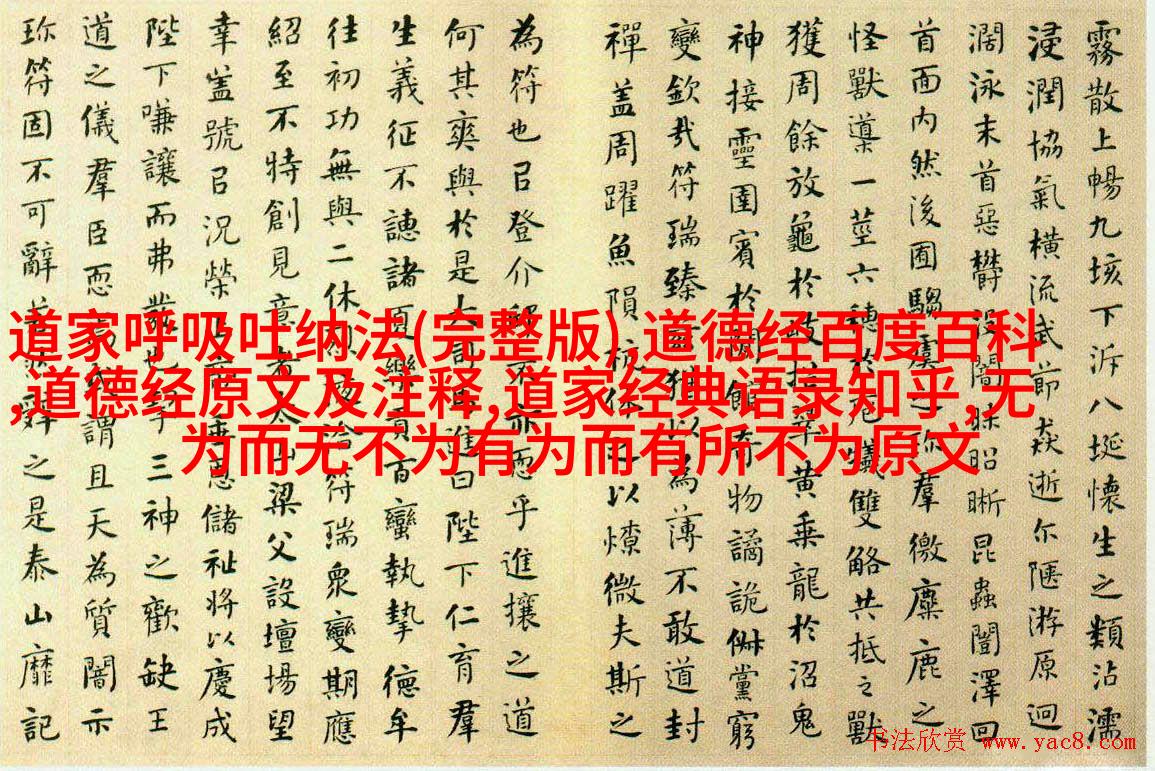 霧散上暢九垓下泝八埏懷生之類沾濡
浸潤協氣橫流武節猋逝尒陿游原迥
濶泳末首惡欝沒闇昧昭晰昆蟲闓澤回
首面內然後囿騶虞之珍羣徼麋鹿之
怪獸導一莖六穗於庖犧雙觡共抵之獸
獲周餘放龜於岐招翠黃乘龍於沼鬼
神接靈圉賓於閒館奇物譎詭俶黨窮
變欽哉符瑞臻茲猶以為薄不敢道封
禪蓋周躍魚隕杭休之以燎微夫斯之
為符也㠯登介邱不亦恧乎進攘之道
何其爽與於是大司馬進曰陛下仁育羣
生義征不譓諸夏樂貢百蠻執摯德牟
往初功無與二休烈浹洽符瑞衆變期應
紹至不特創見意者太山梁父設壇場望
幸蓋號㠯況榮上帝垂恩儲祉將以慶成
陛下嗛讓而弗發也挈三神之歡缺王
道之儀羣臣恧焉或謂且天為質闇示
珍符固不可辭若然辭之是泰山靡記
道家呼吸吐纳法(完整版),道德经百度百科
,道德经原文及注释,道家经典语录知乎,无
为而无不为有为而有所不为原文
书法欣赏 www.yac8.com